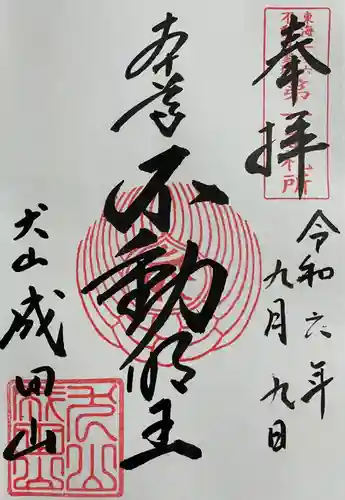 奉拝
令和六年
九月九日
本尊
不動明王
犬山
成田山